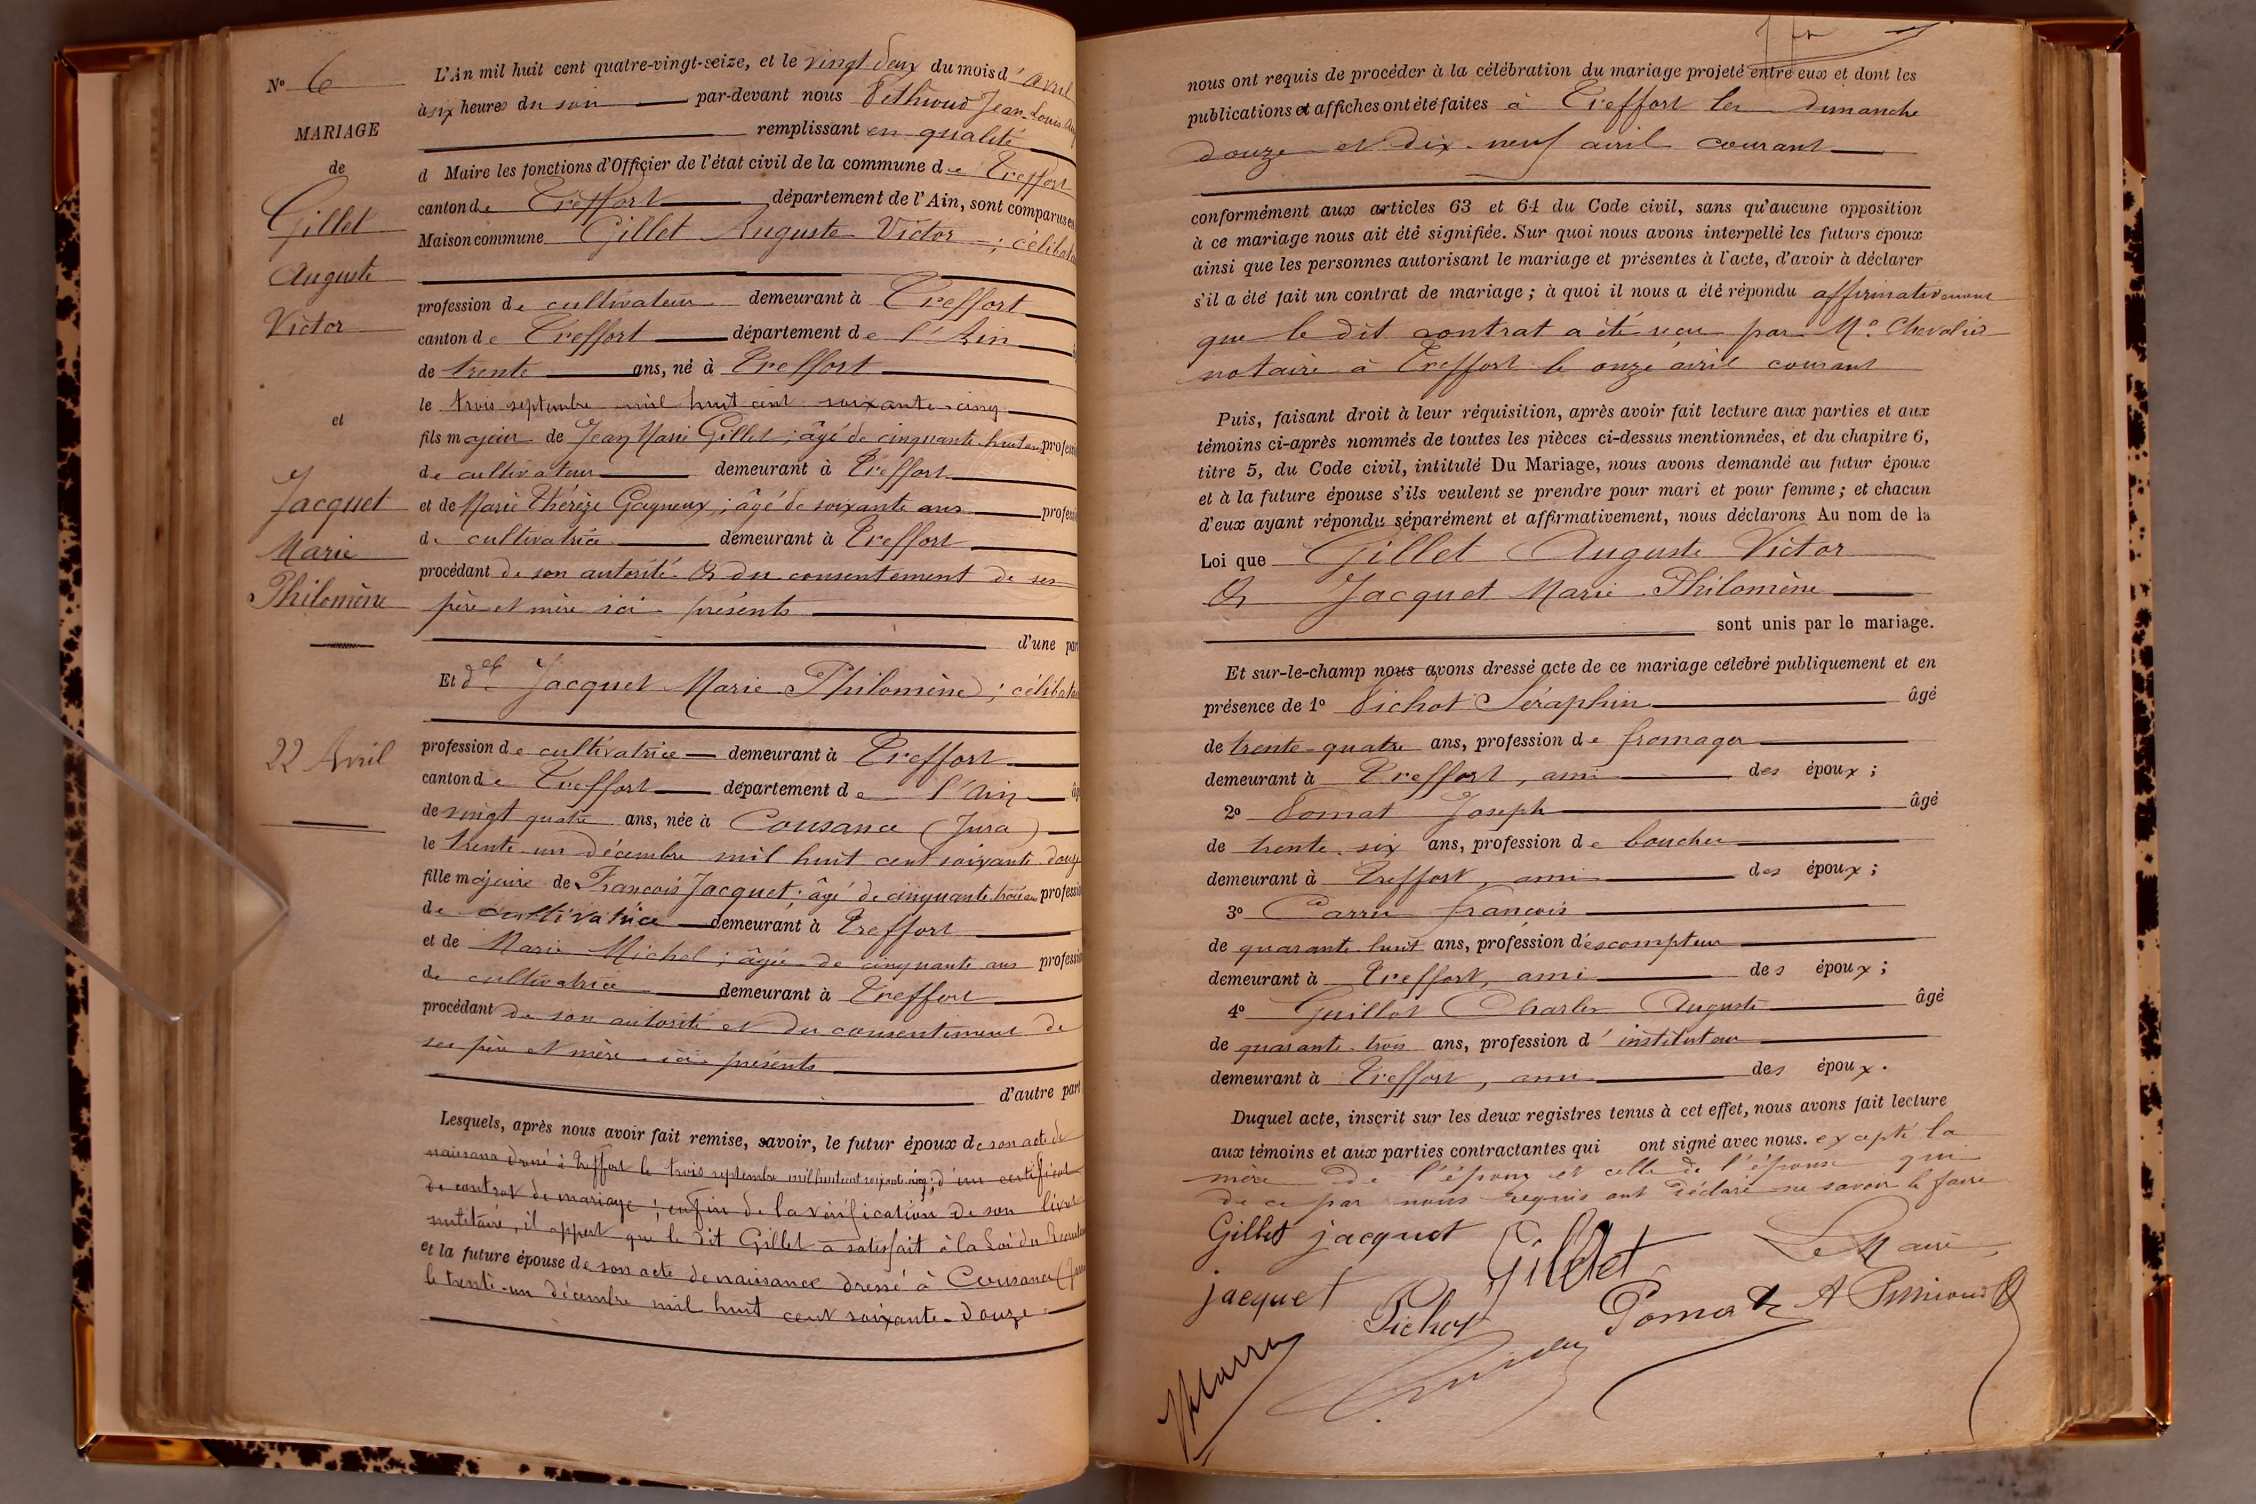 N° 6
MARIAGE
de
Gillet
Auguste
Victor
et
Jacquet
Marie
Philomène
22 Avril
L'An mil huit cent quatre-vingt-seize, et le vingt deux du mois d'avril
à six heures du soir par-devant nous Jean-Louis
remplissant en qualité
d Maire les fonctions d'Officier de l'état civil de la commune de Treffort
canton de Treffort département de l'Ain, sont comparus en
Maison commune Gillet Auguste Victor ; célibata
profession de cultivateur demeurant à Treffort
canton de Treffort département de l'Ain
de trente ans, né à Treffort
le trois septembre mil huit cent soixante-cinq
fils majeur de Jean Marie Gillet ; âgé de cinquante-huit ans professi
de cultivateur demeurant à Treffort
et de Marie Thérèze Gagneux ; âgé de soixante ans professi
de cultivatrice demeurant à Treffort
procédant de son autorité & du consentement de ses
père et mère ici présents
d'une par
Et d'elle Jacquet Marie Philomène ; céliba
profession de cultivatrice demeurant à Treffort
canton de Treffort département de l'Ain âg
de vingt quatre ans, née à Cousance (Jura)
le trente un décembre mil huit cent soixante douze
fille majeure de François Jacquet ; âgé de cinquante trois ans professi
de cultivatrice demeurant à Treffort
et de Marie Michel ; âgée de cinquante ans professi
de cultivatrice demeurant à Treffort
procédant de son autorité et du consentement de
ses père et mère ici présents
d'autre part
Lesquels, après nous avoir fait remise, savoir, le futur époux de son acte de
naissance dressé à Treffort le trois septembre mil huit cent soixante cinq ; d'un certificat
de contrat de mariage ; enfin de la vérification de son livret
militaire, il appert que le dit Gillet a satisfait à la Loi du
et la future épouse de son acte de naissance dressé à Cousance
le trente-un décembre mil huit cent soixante-douze
nous ont requis de procéder à la célébration du mariage projeté entre eux et dont les
publications et affiches ont été faites à Treffort les dimanche
douze et dix-neuf avril courant
conformément aux articles 63 et 64 du Code civil, sans qu'aucune opposition
à ce mariage nous ait été signifiée. Sur quoi nous avons interpellé les futurs époux
ainsi que les personnes autorisant le mariage et présentes à l'acte, d'avoir à déclarer
s'il a été fait un contrat de mariage ; à quoi il nous a été répondu affirmativement
que le dit contrat a été reçu par Me. Chevalier
notaire à Treffort le onze avril courant
Puis, faisant droit à leur réquisition, après avoir fait lecture aux parties et aux
témoins ci-après nommés de toutes les pièces ci-dessus mentionnées, et du chapitre 6,
titre 5, du Code civil, intitulé Du Mariage, nous avons demandé au futur époux
et à la future épouse s'ils veulent se prendre pour mari et pour femme ; et chacun
d'eux ayant répondu séparément et affirmativement, nous déclarons Au nom de la
Loi que Gillet Auguste Victor
& Jacquet Marie Philomène
sont unis par le mariage.
Et sur-le-champ nous avons dressé acte de ce mariage célébré publiquement et en
présence de 1° Pichot Séraphin âgé
de trente-quatre ans, profession de fromager
demeurant à Treffort, ami des époux ;
2° Pomat Joseph âgé
de trente six ans, profession de boucher
demeurant à Treffort, ami des époux ;
3° françois
de quarante huit ans, profession d'escompteur
demeurant à Treffort, ami des époux ;
4° Guillot Charles Auguste âgé
de quarante-trois ans, profession d'instituteur
demeurant à Treffort, ami des époux.
Duquel acte, inscrit sur les deux registres tenus à cet effet, nous avons fait lecture
aux témoins et aux parties contractantes qui ont signé avec nous. excepté la
mère de l'époux et celle de l'épouse qui
de ce par nous requis ont déclaré ne savoir le faire
Gillet jacquet Gillet Le Maire,
jacquet Pichot Pomat